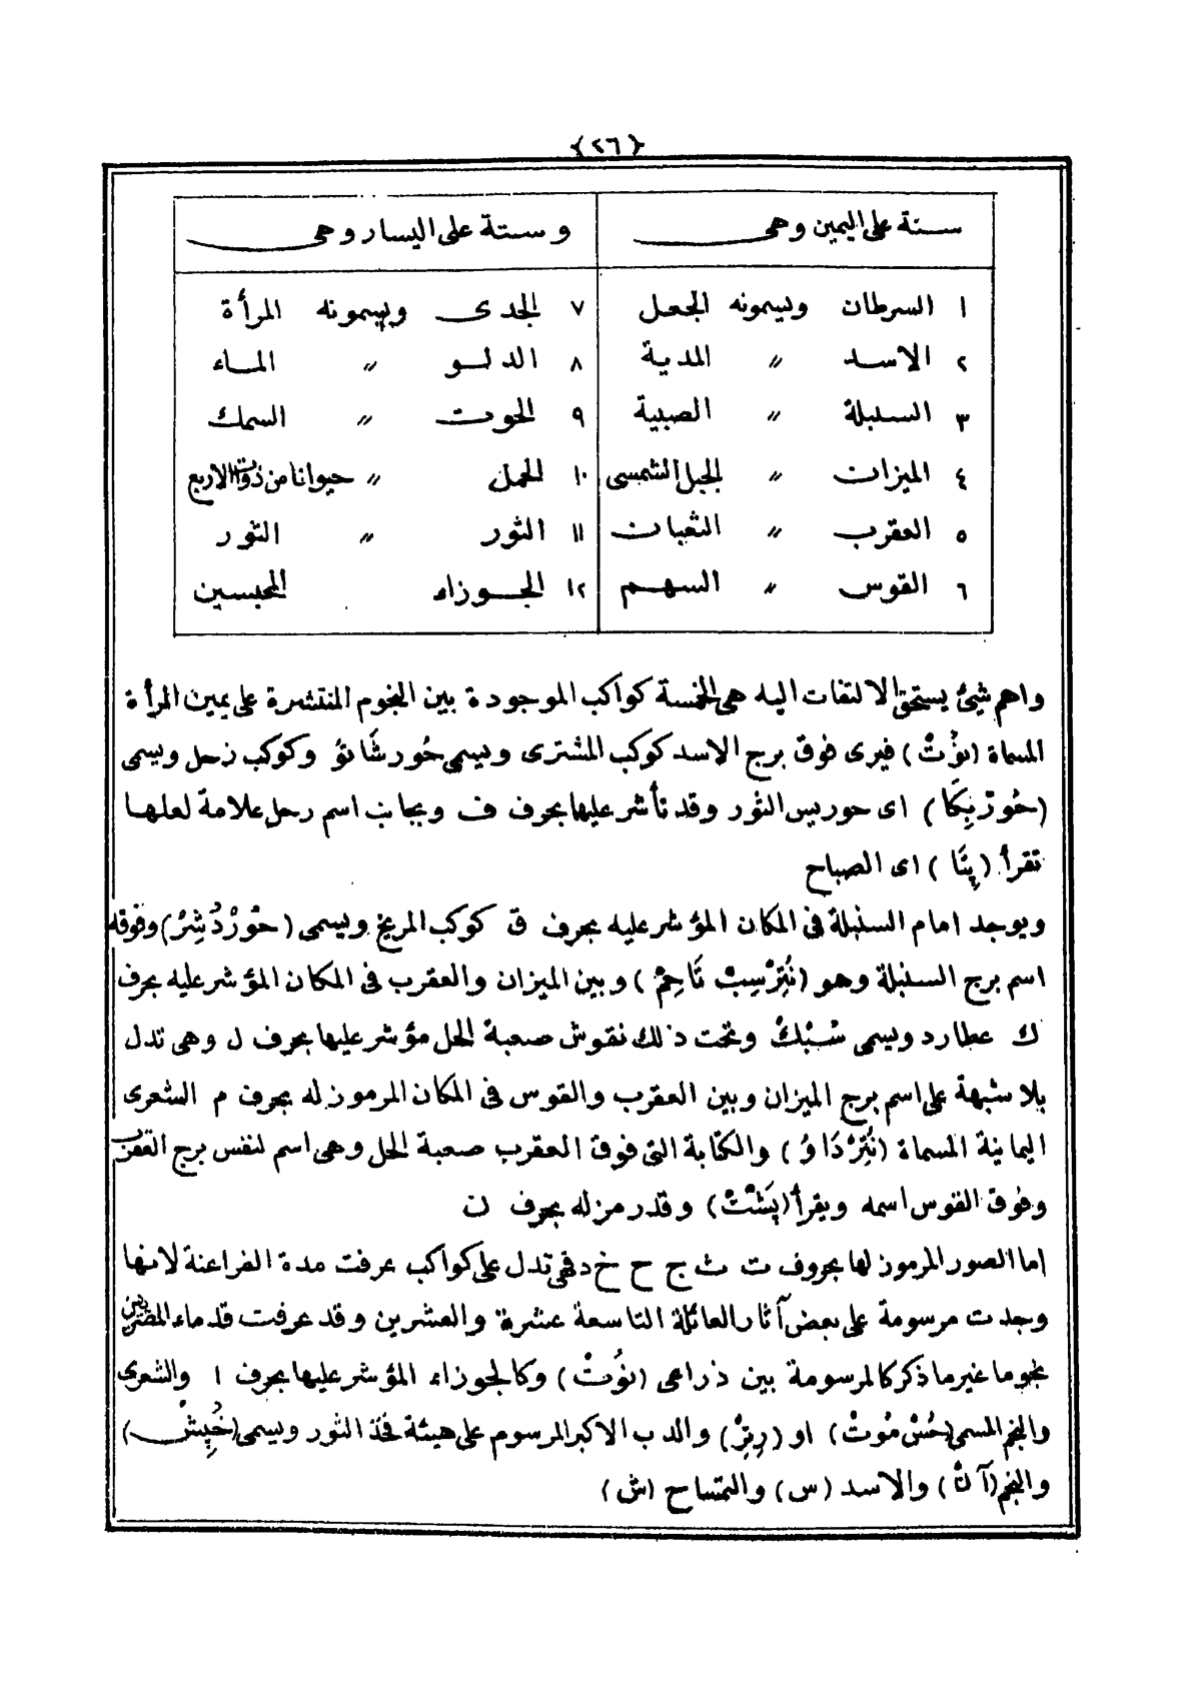 {٢٦}
ستة على اليمين وهى
وستة على اليسار وهى
١ السرطان ويسمونه الجعل
٢ الاسد " المدية
٣ السنبلة " الصبية
٤ الميزان " الجبل الشمسى
٥ العقرب " الثعبان
٦ القوس " السهم
٧ الجدى ويسمونه المرأة
٨ الدلو " الماء
٩ الحوت " السمك
١٠ الحمل " حيوانا من ذوات الاربع
١١ الثور " الثور
١٢ الجوزاء المحبسين
واهم شيئ يستحق الالتفات اليه هى الخمسة كواكب الموجودة بين النجوم المنتشرة على يمين المرأة
المسماة (نؤُتْ) فيرى فوق برج الاسد كوكب المشترى ويسمى حُور شَائؤ وكوكب زحل ويسمى
(حُورْبِكَا) اى حوريس الثور وقد تأشر عليها بحرف ف وبجانب اسم زحل علامة لعلها
تقرأ (بِتَا) اى الصباح
ويوجد امام السنبلة فى المكان المؤشر عليه بحرف ق كوكب المريخ ويسمى (حُوْرْدُشِرْ) وفوقه
اسم برج السنبلة وهو (نُتِرْسِبْ تَاحِمْ) وبين الميزان والعقرب فى المكان المؤشر عليه بحرف
ك عطارد ويسمى سْبْكْ وتحت ذلك نقوش صعبة الحل مؤشر عليها بحرف ل وهى تدل
بلا شبهة على اسم برج الميزان وبين العقرب والقوس فى المكان المرموز له بحرف م الشعرى
اليمانية المسماة (نُتِرْدَاوُ) والكتابة التى فوق العقرب صعبة الحل وهى اسم لنفس برج العقرب
وفوق القوس اسمه ويقرأ (پَشْتْ) وقد رمز له بحرف ن
اما الصور المرموز لها بحروف ت ث ج ح خ د فهى تدل على كواكب عرفت مدة الفراعنة لانها
وجدت مرسومة على بعض آثار العائلة التاسعة عشرة والعشرين وقد عرفت قدماء المصريين
نجوما غير ما ذكر كالمرسومة بين ذراعى (نؤُتْ) وكالجوزاء المؤشر عليها بحرف ا والشعرى
والنجم المسمى (حُسْ مُوتْ) او (رِتِرْ) والدب الاكبر المرسوم على هيئة فخذ الثور ويسمى (خُبِشْ)
والنجم (آنْ) والاسد (س) والتمساح (ش)